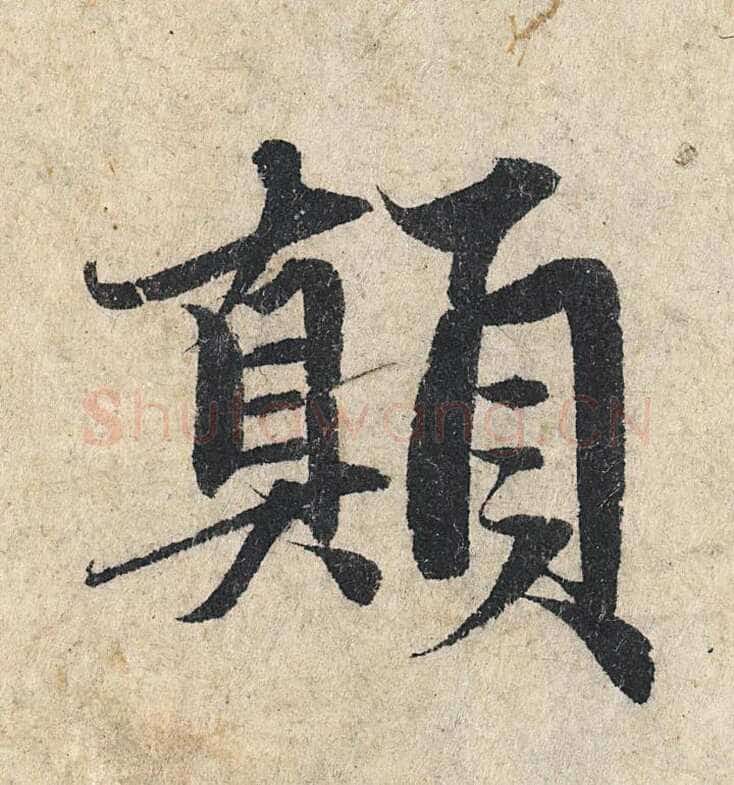 顛
Shufawang.CN